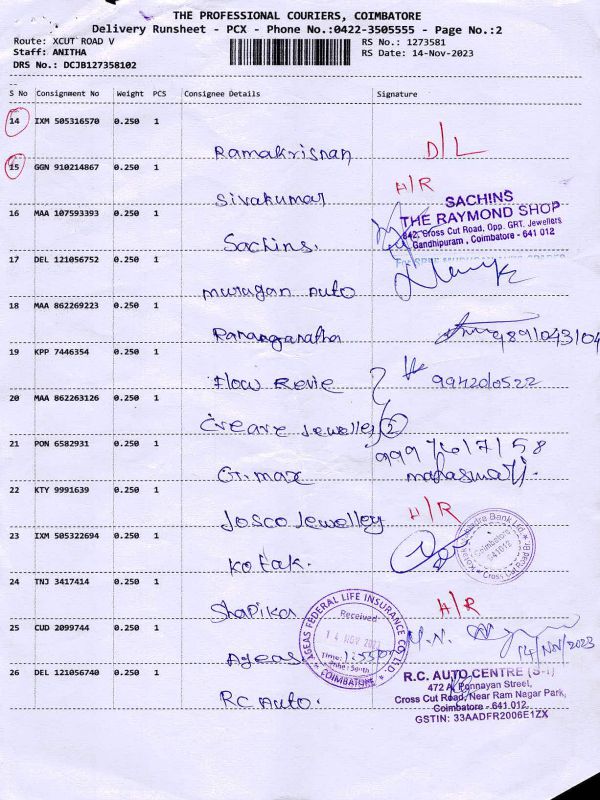 THE PROFESSIONAL COURIERS, COIMBATORE
Delivery Runsheet - PCX - Phone No.:0422-3505555 - Page No.:2
Route: XCUT ROAD V
Staff: ANITHA
DRS No.: DCJB127358102
RS No.: 1273581
RS Date: 14-Nov-2023
S No Consignment No Weight PCS Consignee Details Signature
14 IXM 505316570 0.250 1
Ramakrisnan D/L
15 GGN 910214867 0.250 1
Sivakumar H/R
SACHINS
THE RAYMOND SHOP
642, Cross Cut Road, Opp. GRT. Jewellers
Gandhipuram, Coimbatore - 641 012
16 MAA 107593393 0.250 1
Sachins.
17 DEL 121056752 0.250 1
murugan Auto
18 MAA 862269223 0.250 1
Rananganatha 9891043104
19 KPP 7446354 0.250 1
Flow Revie 9942010522
20 MAA 862263126 0.250 1
Creare Jewelley 2
21 PON 6582931 0.250 1
G.max 9997617158
mahaswari.
22 KTY 9991639 0.250 1
Josco Jewelley H/R
23 IXM 505322694 0.250 1
Kotak.
Coimbatore
641012
Cross Cut Road
24 TNJ 3417414 0.250 1
Shapika H/R
25 CUD 2099744 0.250 1
Ageas
AGEAS FEDERAL LIFE INSURANCE CO LTD
Received
14 NOV 2023
Time:
Zone: South
COIMBATORE
14/Nov/2023
26 DEL 121056740 0.250 1
RC Auto.
R.C. AUTO CENTRE (S-1)
472 A, Ponnayan Street,
Cross Cut Road, Near Ram Nagar Park,
Coimbatore - 641 012.
GSTIN: 33AADFR2006E1ZX